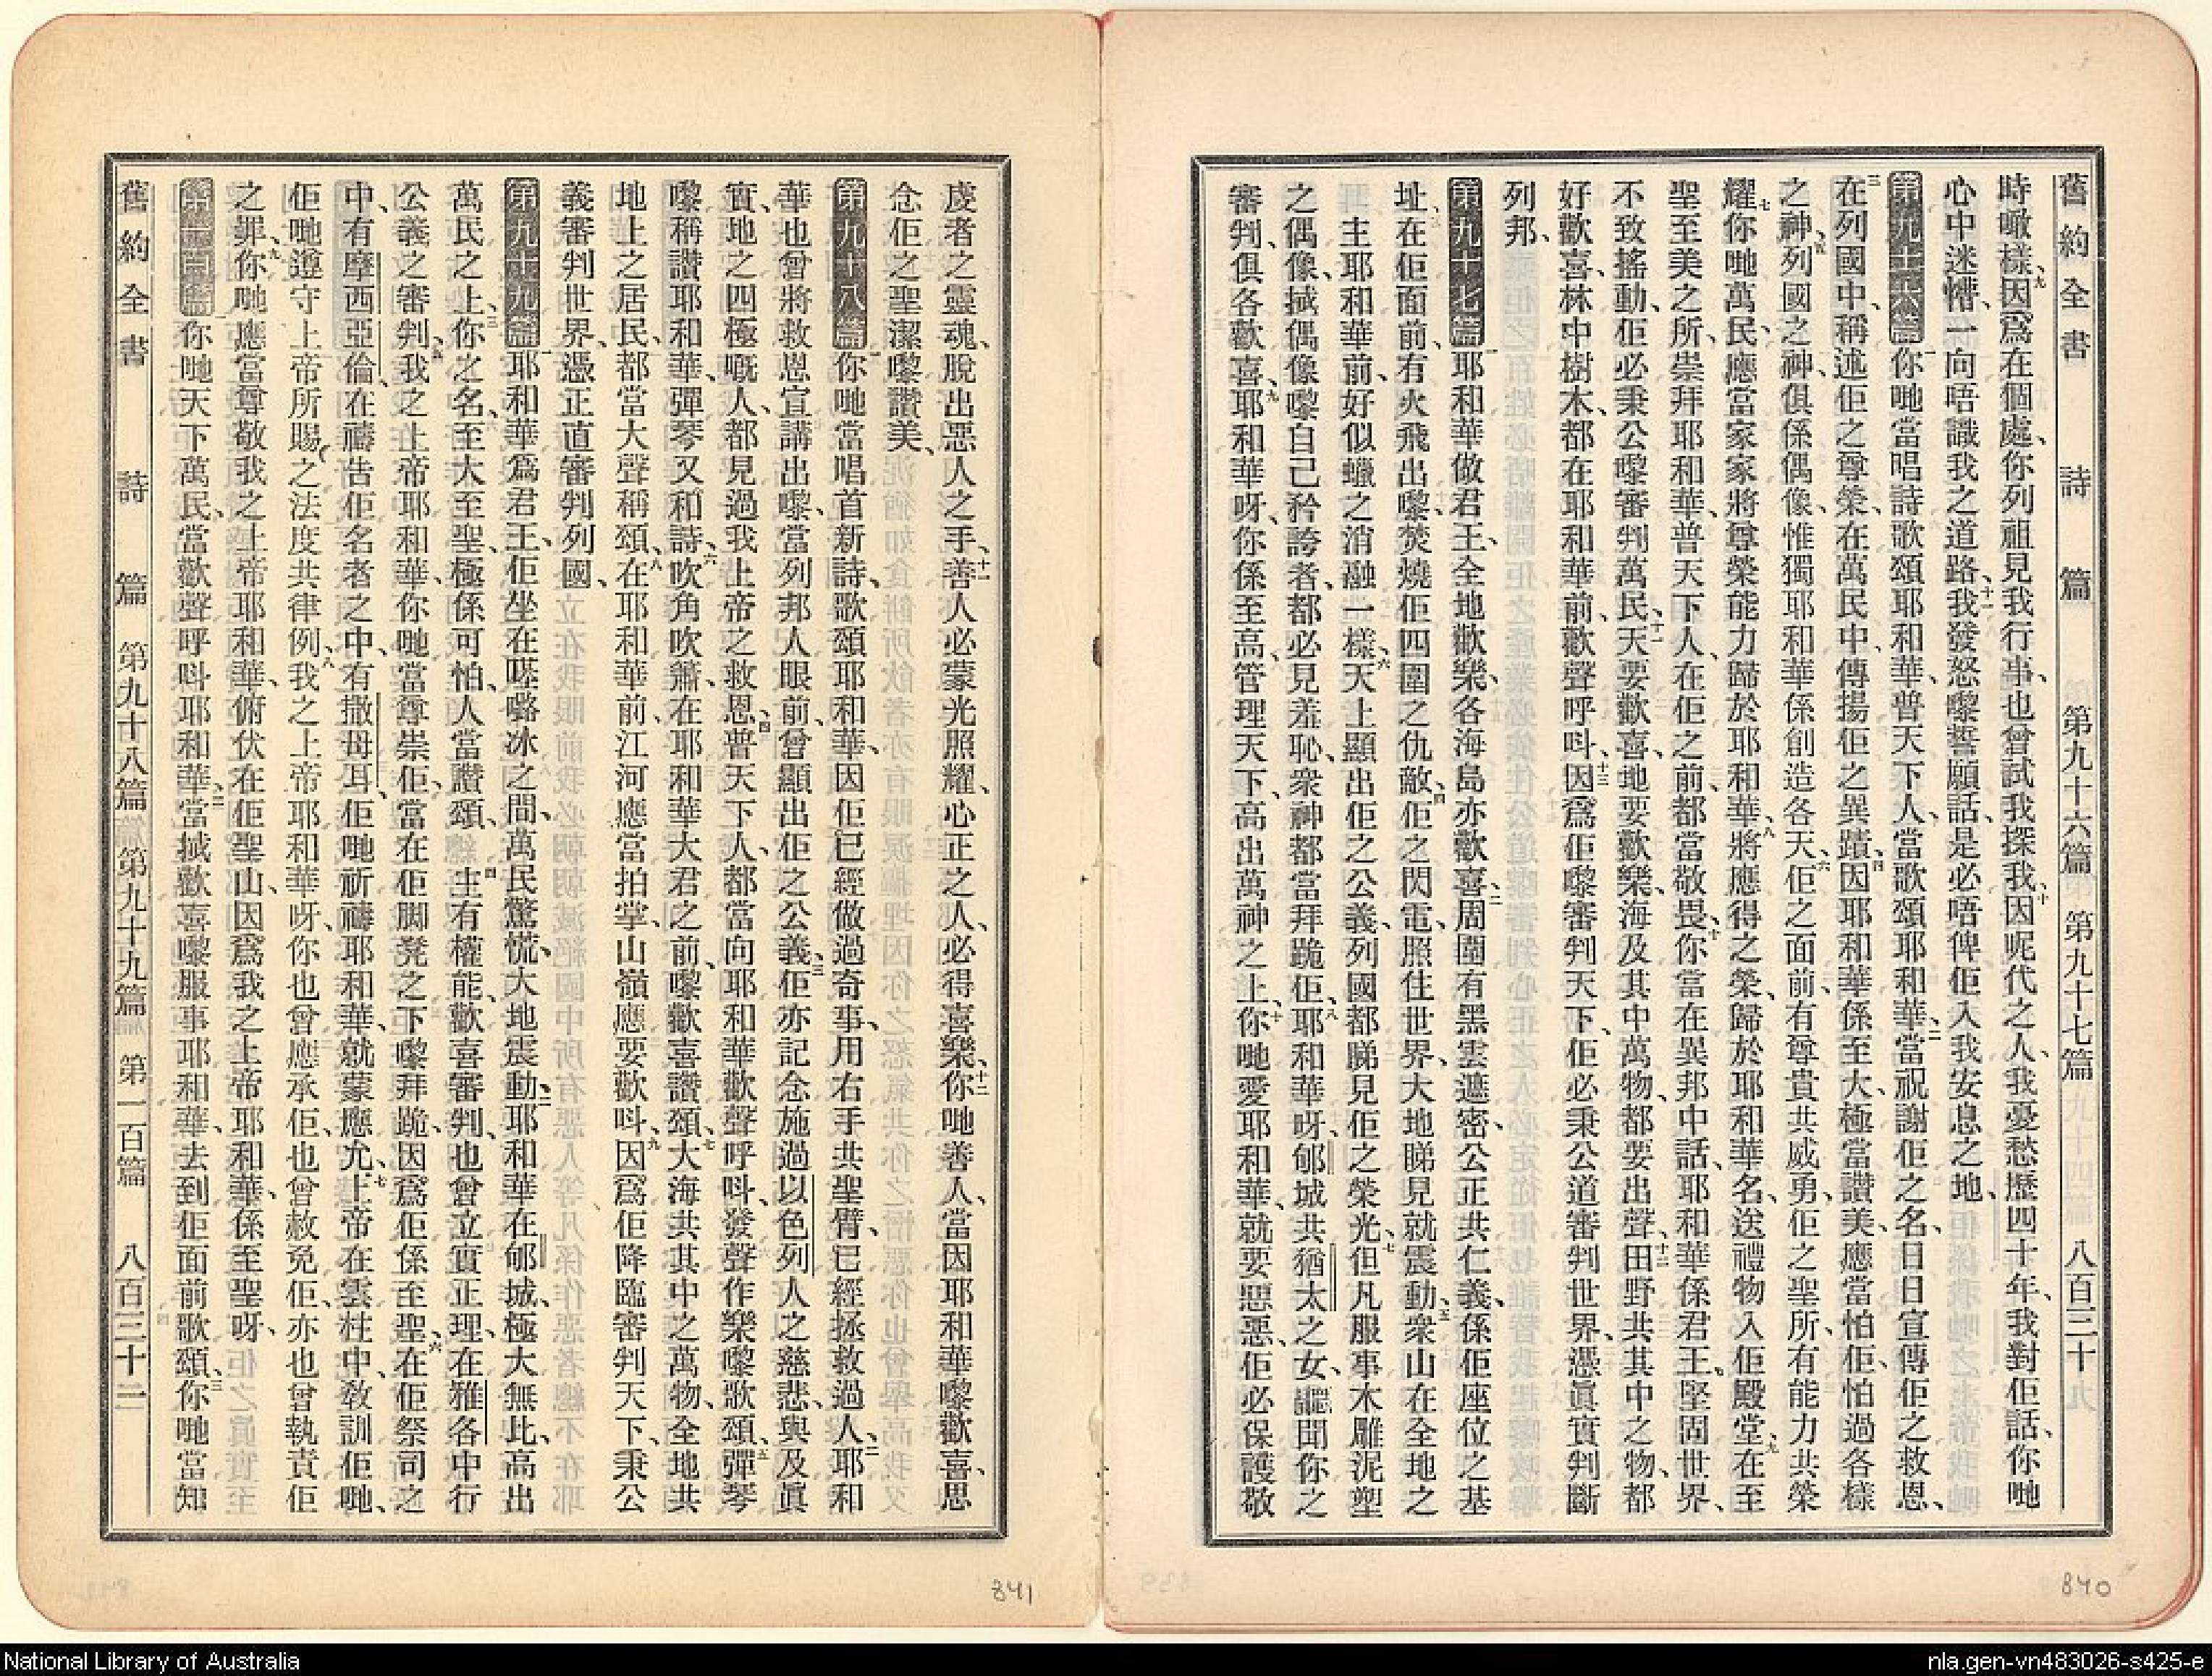 舊約全書 詩篇 第九十六篇 第九十七篇 八百三十
時噉樣、九因爲在個處、你列祖見我行事、也曾試我探我、十因呢代之人、我憂愁歷四十年、我對佢話、你哋
心中迷懵、一向唔識我之道路、十一我發怒嚟誓願話、是必唔俾佢入我安息之地、
第九十六篇 一你哋當唱詩歌頌耶和華、普天下人、當歌頌耶和華、二當祝謝佢之名、日日宣傳佢之救恩、
三在列國中、稱述佢之尊榮、在萬民中、傳揚佢之異蹟、四因耶和華係至大、極當讚美、應當怕佢、怕過各樣
之神、五列國之神、俱係偶像、惟獨耶和華係創造各天、六佢之面前、有尊貴共威勇、佢之聖所、有能力共榮
耀、七你哋萬民、應當家家將尊榮能力歸於耶和華、八將應得之榮、歸於耶和華名、送禮物入佢殿堂、九在至
聖至美之所、崇拜耶和華、普天下人、在佢之前、都當敬畏、十你當在異邦中話、耶和華係君王、堅固世界、
不致搖動、佢必秉公嚟審判萬民、十一天要歡喜、地要歡樂、海及其中萬物、都要出聲、十二田野共其中之物、都
好歡喜、林中樹木、都在耶和華前、歡聲呼呌、十三因爲佢嚟審判天下、佢必秉公道審判世界、憑眞實判斷
列邦、
第九十七篇 一耶和華做君王、全地歡樂、各海島亦歡喜、二周圍有黑雲遮密、公正共仁義、係佢座位之基
址、三在佢面前、有火飛出嚟、焚燒佢四圍之仇敵、四佢之閃電、照住世界、大地睇見就震動、五衆山在全地之
主耶和華前、好似蠟之消融一樣、六天上顯出佢之公義、列國都睇見佢之榮光、七但凡服事木雕泥塑
之偶像、掝偶像嚟自己矜誇者、都必見羞恥、衆神都當拜跪佢、八耶和華呀、郇城共猶太之女、聽聞你之
審判、俱各歡喜、九耶和華呀、你係至高、管理天下、高出萬神之上、十你哋愛耶和華、就要惡惡、佢必保護敬
虔者之靈魂、脫出惡人之手、十一善人必蒙光照耀、心正之人、必得喜樂、十二你哋善人、當因耶和華嚟歡喜、思
念佢之聖潔嚟讚美、
第九十八篇 一你哋當唱首新詩、歌頌耶和華、因佢已經做過奇事、用右手共聖臂、已經拯救過人、二耶和
華也曾將救恩宣講出嚟、當列邦人眼前、曾顯出佢之公義、三佢亦記念施過以色列人之慈悲、與及眞
實、地之四極嘅人、都見過我上帝之救恩、四普天下人、都當向耶和華歡聲呼呌、發聲作樂嚟歌頌、五彈琴
嚟稱讚耶和華、彈琴又和詩、六吹角吹簫、在耶和華大君之前、嚟歡喜讚頌、七大海共其中之萬物、全地共
地上之居民、都當大聲稱頌、八在耶和華前、江河應當拍掌、山嶺應要歡呌、九因爲佢降臨審判天下、秉公
義審判世界、憑正直審判列國、
第九十九篇 一耶和華爲君王、佢坐在㗭嚕冰之間、萬民驚慌、大地震動、二耶和華在郇城、極大無比、高出
萬民之上、三你之名、至大至聖、極係可怕、人當讚頌、四王有權能、歡喜審判、也曾立實正理、在雅各中行
公義之審判、五我之上帝耶和華、你哋當尊崇佢、當在佢脚凳之下嚟拜跪、因爲佢係至聖、六在佢祭司之
中、有摩西亞倫、在禱告佢名者之中、有撒母耳、佢哋祈禱耶和華、就蒙應允、七上帝在雲柱中、敎訓佢哋、
佢哋遵守上帝所賜之法度共律例、八我之上帝耶和華呀、你也曾應承佢、也曾赦免佢、亦也曾執責佢
之罪、九你哋應當尊敬我之上帝耶和華、俯伏在佢聖山、因爲我之上帝耶和華、係至聖呀、
第一百篇 一你哋天下萬民、當歡聲呼呌耶和華、二當掝歡喜嚟服事耶和華、去到佢面前歌頌、三你哋當知
舊約全書 詩篇 第九十八篇 第九十九篇 第一百篇 八百三十一
841
840
National Library of Australia
nla.gen-vn483026-s425-e